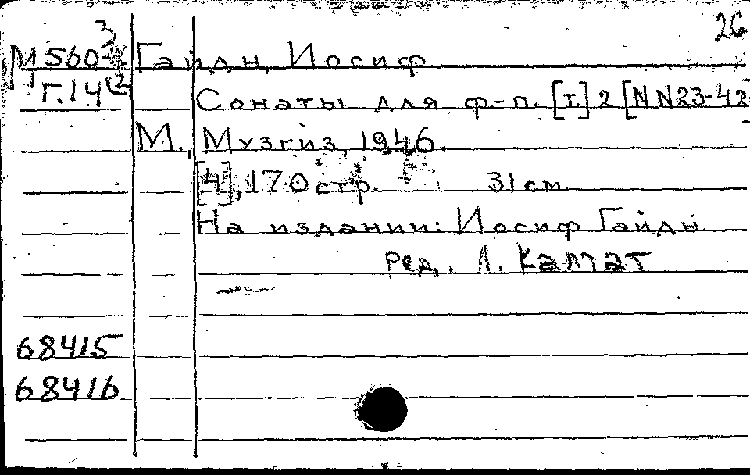 26
М560-3 Гайдн, Иосиф
Г.14(2
Сонаты для ф-п. [т.] 2 [NN23-42
М., Музгиз, 1946.
[4], 170 стр. 31 см
На издании: Иосиф Гайдн
ред. Л. Калтат
68415
68416